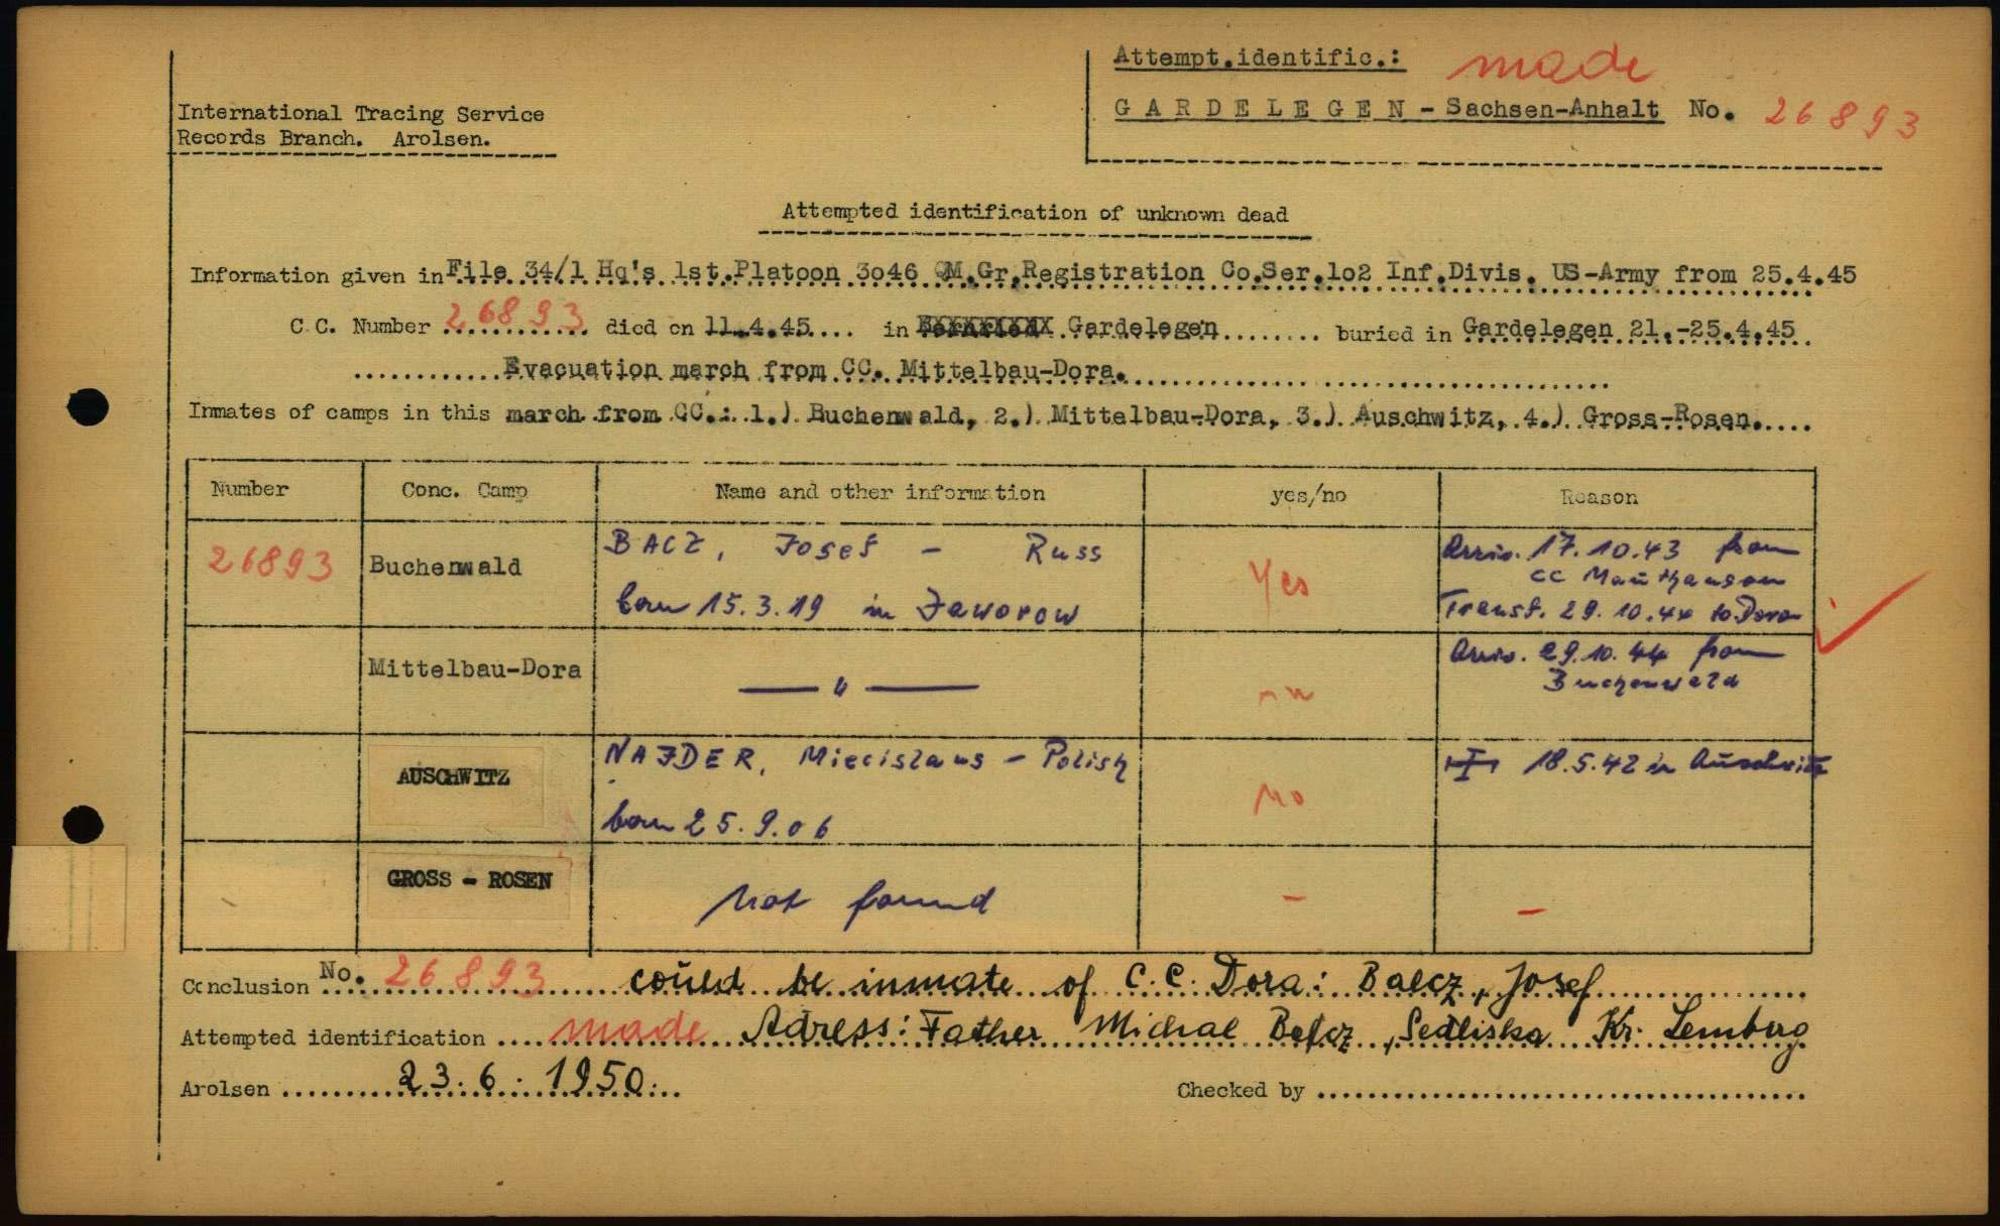 Attempt.identific.: made
GARDELEGEN - Sachsen-Anhalt No. 26893
International Tracing Service
Records Branch. Arolsen.
Attempted identification of unknown dead
Information given in File 34/1 Hq's 1st.Platoon 3o46 QM.Gr.Registration Co.Ser.1o2 Inf.Divis. US-Army from 25.4.45
C.C. Number 26893 died on 11.4.45 in Gardelegen buried in Gardelegen 21.-25.4.45
Evacuation march from CC. Mittelbau-Dora.
Inmates of camps in this march from CC.: 1.) Buchenwald, 2.) Mittelbau-Dora, 3.) Auschwitz, 4.) Gross-Rosen.
Number Conc. Camp Name and other information yes/no Reason
26893 Buchenwald BACZ, Josef - Russ
born 15.3.19 in Jaworow
Yes
Arriv. 17.10.43 from
CC Mauthausen
Transf. 29.10.44 to Dora
Mittelbau-Dora — " —
Arriv. 29.10.44 from
Buchenwald
AUSCHWITZ NAJDER, Miecislaus - Polish
born 25.9.06
No
18.5.42 in Auschwitz
GROSS - ROSEN not found - -
Conclusion No. 26893 could be inmate of C.C. Dora: Balcz, Josef
Attempted identification made Adress: Father Michal Balcz, Sedliska Kr. Lemberg
Arolsen 23.6.1950. Checked by